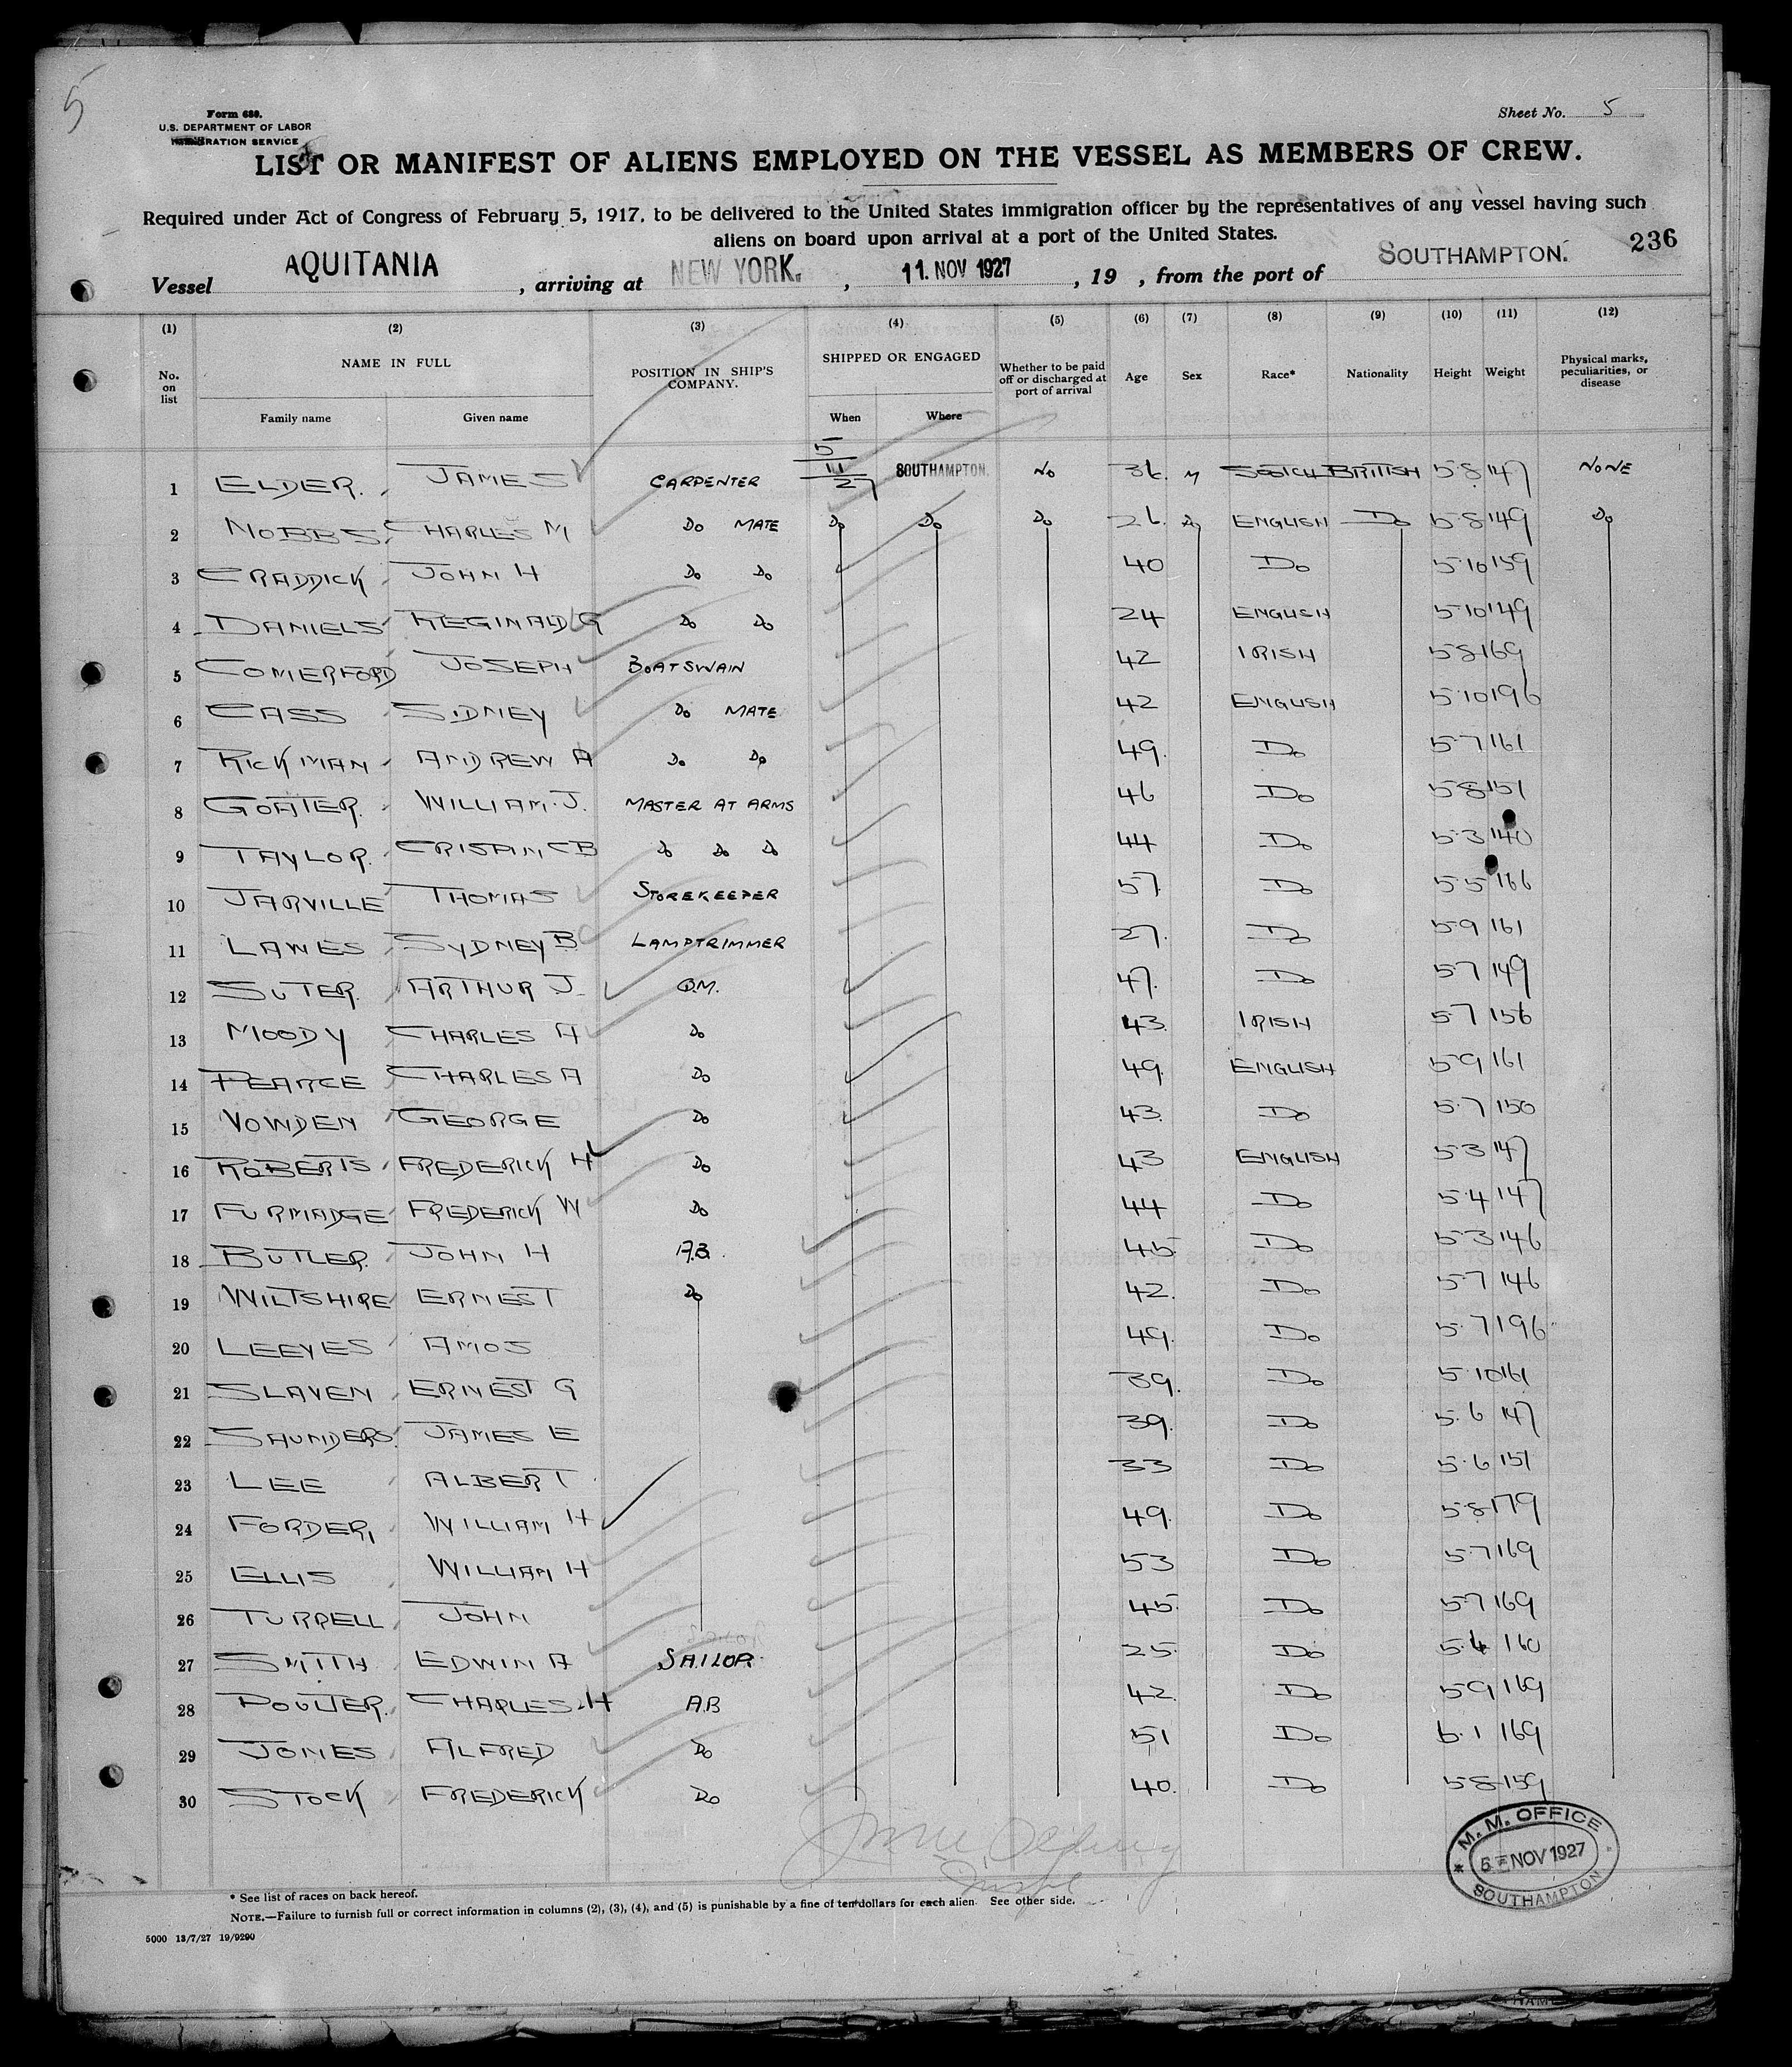 5
Form 680.
U.S. DEPARTMENT OF LABOR
IMMIGRATION SERVICE
Sheet No. 5
LIST OR MANIFEST OF ALIENS EMPLOYED ON THE VESSEL AS MEMBERS OF CREW.
Required under Act of Congress of February 5, 1917, to be delivered to the United States immigration officer by the representatives of any vessel having such
aliens on board upon arrival at a port of the United States.
236
Vessel AQUITANIA, arriving at NEW YORK., 11. NOV 1927, 19 , from the port of SOUTHAMPTON.
(1) (2) (3) (4) (5) (6) (7) (8) (9) (10) (11) (12)
No. on list NAME IN FULL Family name Given name POSITION IN SHIP'S COMPANY. SHIPPED OR ENGAGED When Where Whether to be paid off or discharged at port of arrival Age Sex Race* Nationality Height Weight Physical marks, peculiarities, or disease
1 ELDER. JAMES CARPENTER 5/11/27 SOUTHAMPTON. No 36. M SCOTCH BRITISH 5·8 147 NONE
2 NOBBS CHARLES M Do MATE Do Do Do 26. Do ENGLISH Do 5·8 149 Do
3 CRADDICK JOHN H Do Do 40 Do 5·10 159
4 DANIELS REGINALD G Do Do 24 ENGLISH 5·10 149
5 COMERFORD JOSEPH BOATSWAIN 42 IRISH 5·8 169
6 CASS SIDNEY Do MATE 42 ENGLISH 5·10 196
7 RICKMAN ANDREW A Do Do 49. Do 5·7 161
8 GOATER. WILLIAM.J. MASTER AT ARMS 46 Do 5·8 151
9 TAYLOR. CRISPIN C B Do Do Do 44 Do 5·3 140
10 JARVILLE THOMAS STOREKEEPER 57 Do 5·5 166
11 LAWES SYDNEY B LAMPTRIMMER 27. Do 5·9 161
12 SUTER. ARTHUR J Q.M. 47. Do 5·7 149
13 MOODY CHARLES A Do 43. IRISH 5·7 156
14 PEARCE CHARLES A Do 49. ENGLISH 5·9 161
15 VOWDEN GEORGE Do 43. Do 5·7 150
16 ROBERTS FREDERICK H Do 43 ENGLISH 5·3 147
17 FURMADGE FREDERICK W Do 44 Do 5·4 147
18 BUTLER. JOHN H A.B. 45. Do 5·3 146
19 WILTSHIRE ERNEST Do 42. Do 5·7 146
20 LEEVES AMOS 49. Do 5·7 196
21 SLAVEN ERNEST G 39. Do 5·10 161
22 SAUNDERS. JAMES E 39. Do 5·6 147
23 LEE ALBERT 33 Do 5·6 151
24 FORDER, WILLIAM H 49. Do 5·8 179
25 ELLIS WILLIAM H 53 Do 5·7 169
26 TURRELL JOHN 45. Do 5·7 169
27 SMITH EDWIN A SAILOR. 25. Do 5·4 160
28 POULTER. CHARLES.H A.B 42. Do 5·9 169
29 JONES ALFRED Do 51 Do 6·1 169
30 STOCK FREDERICK Do 40. Do 5·8 159
M. M. OFFICE
5 NOV 1927
SOUTHAMPTON
* See list of races on back hereof.
NOTE.—Failure to furnish full or correct information in columns (2), (3), (4), and (5) is punishable by a fine of ten dollars for each alien. See other side.
5000 13/7/27 19/9290